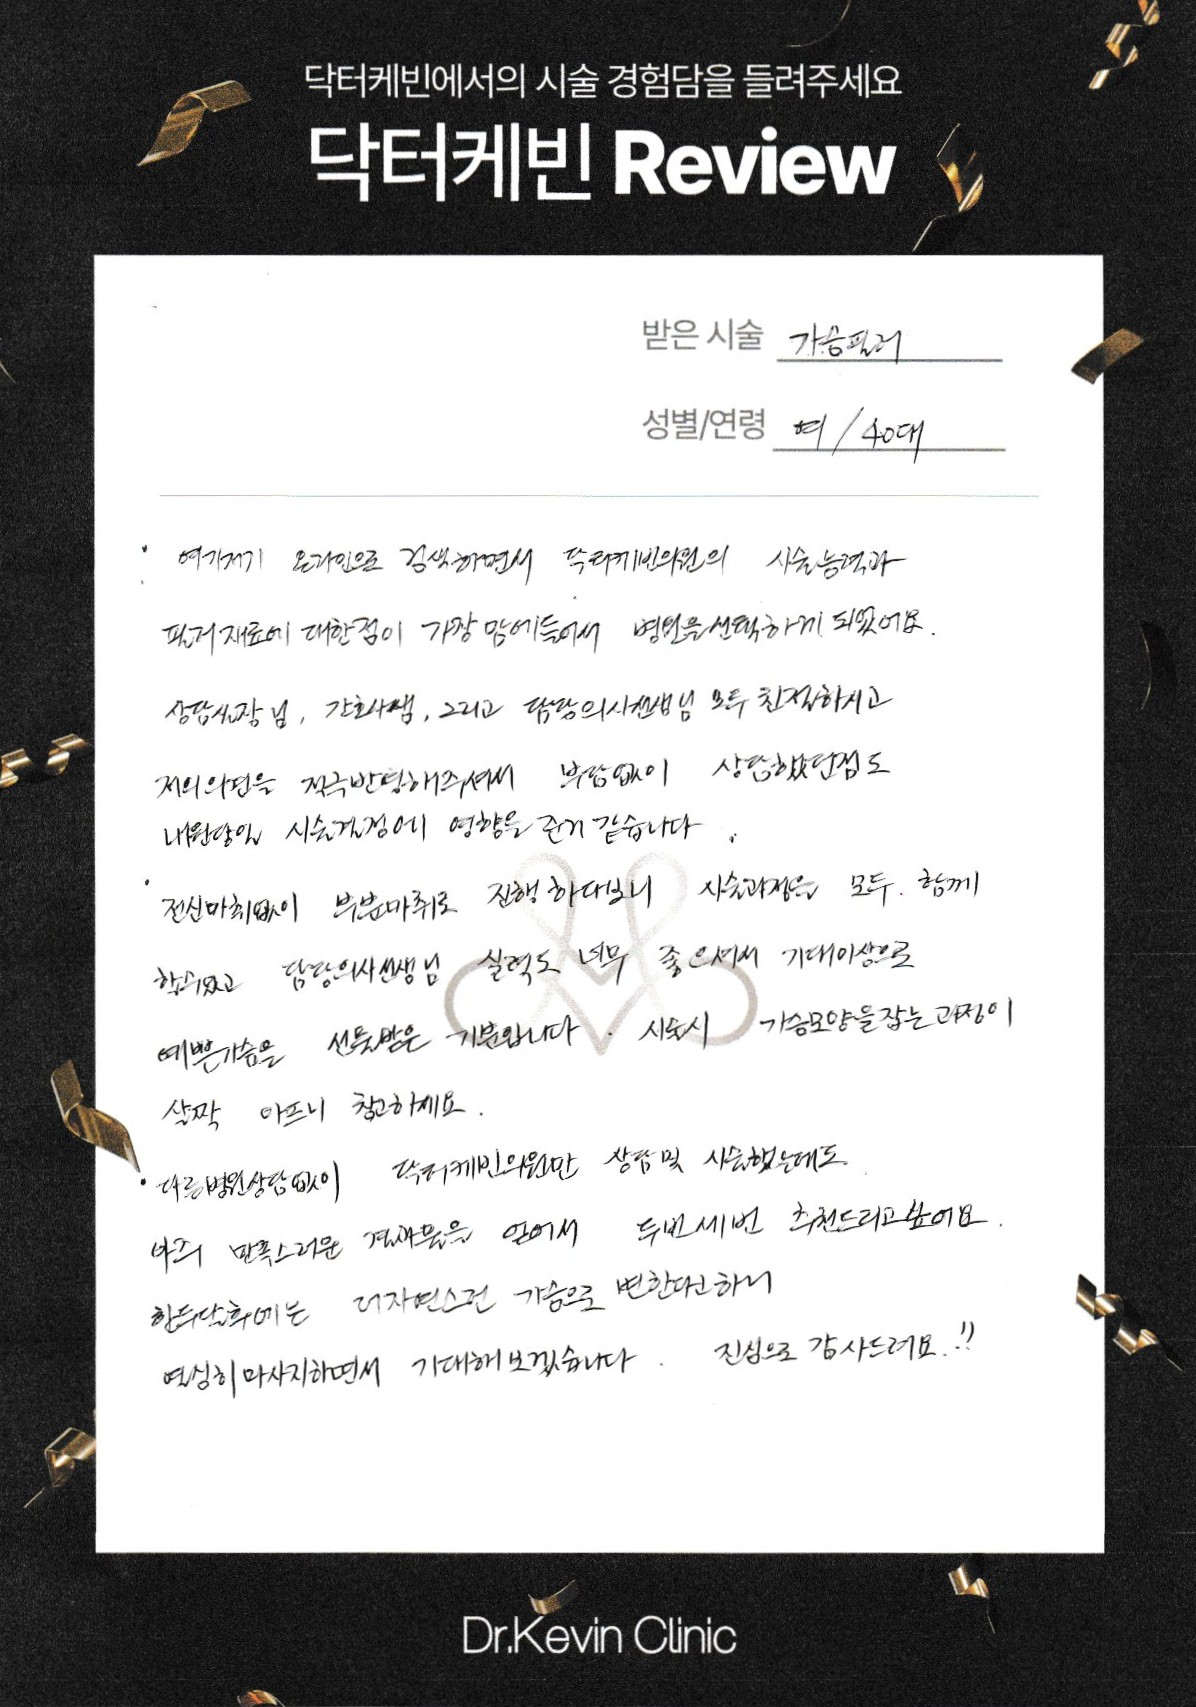 닥터케빈에서의 시술 경험담을 들려주세요
닥터케빈 Review
받은 시술 가슴필러
성별/연령 여/40대
· 여기저기 온라인으로 검색하면서 닥터케빈의원의 시술능력과
필러재료에 대한점이 가장 맘에들어서 병원을선택하게 되었어요.
상담실장님, 간호사쌤, 그리고 담당의사선생님 모두 친절하시고
저의의견을 적극반영해주셔서 부담없이 상담했던점도
내원당일 시술결정에 영향을 준거 같습니다.
· 전신마취없이 부분마취로 진행하다보니 시술과정을 모두 함께
할수있었고 담당의사선생님 실력도 너무 좋으셔서 기대이상으로
예쁜가슴을 선물받은 기분입니다. 시술시 가슴모양을잡는과정이
살짝 아프니 참고하세요.
· 다른병원상담없이 닥터케빈의원만 상담및 시술했는데도
아주 만족스러운 결과물을 얻어서 두번세번 추천드리고싶어요.
한두달후에는 더자연스런 가슴으로 변한다고하니
열심히마사지하면서 기대해보겠습니다. 진심으로 감사드려요.!!
Dr.Kevin Clinic